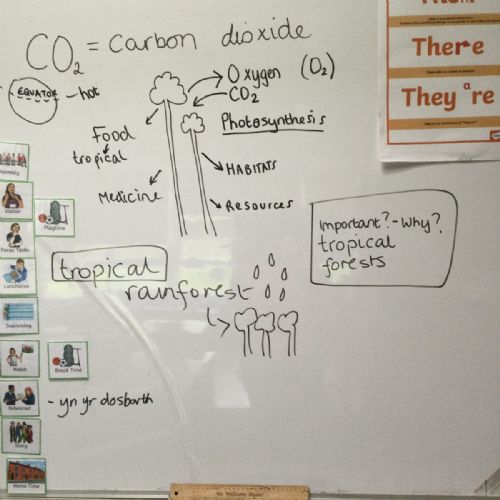 CO₂ = Carbon dioxide
EQUATOR - hot
Oxygen (O₂)
CO₂
Photosynthesis
Food
tropical
Medicine
HABITATS
Resources
Important? - Why?
tropical
forests
tropical
rainforest
There
They're
Visitor
Playtime
Focus Tasks
Lunchtime
Swimming
Welsh
Break Time
Rehearsal
- yn yr dosbarth
Story
Home Time